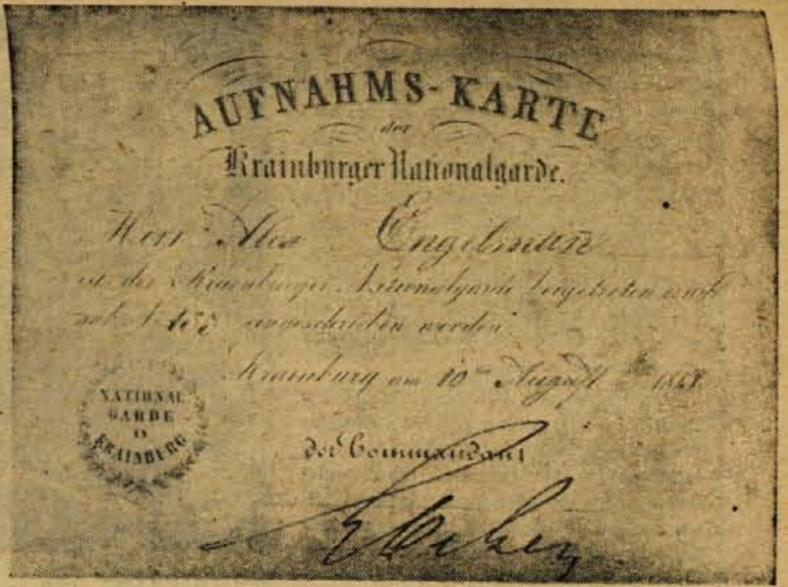 AUFNAHMS-KARTE
der
Krainburger Nationalgarde.
Herr Alex Engelman
ist der Krainburger Nationalgarde beigetreten und
sub N. eingeschrieben worden
Krainburg am 10ten August 1848.
NATIONAL
GARDE
IN
KRAINBURG
der Commandant